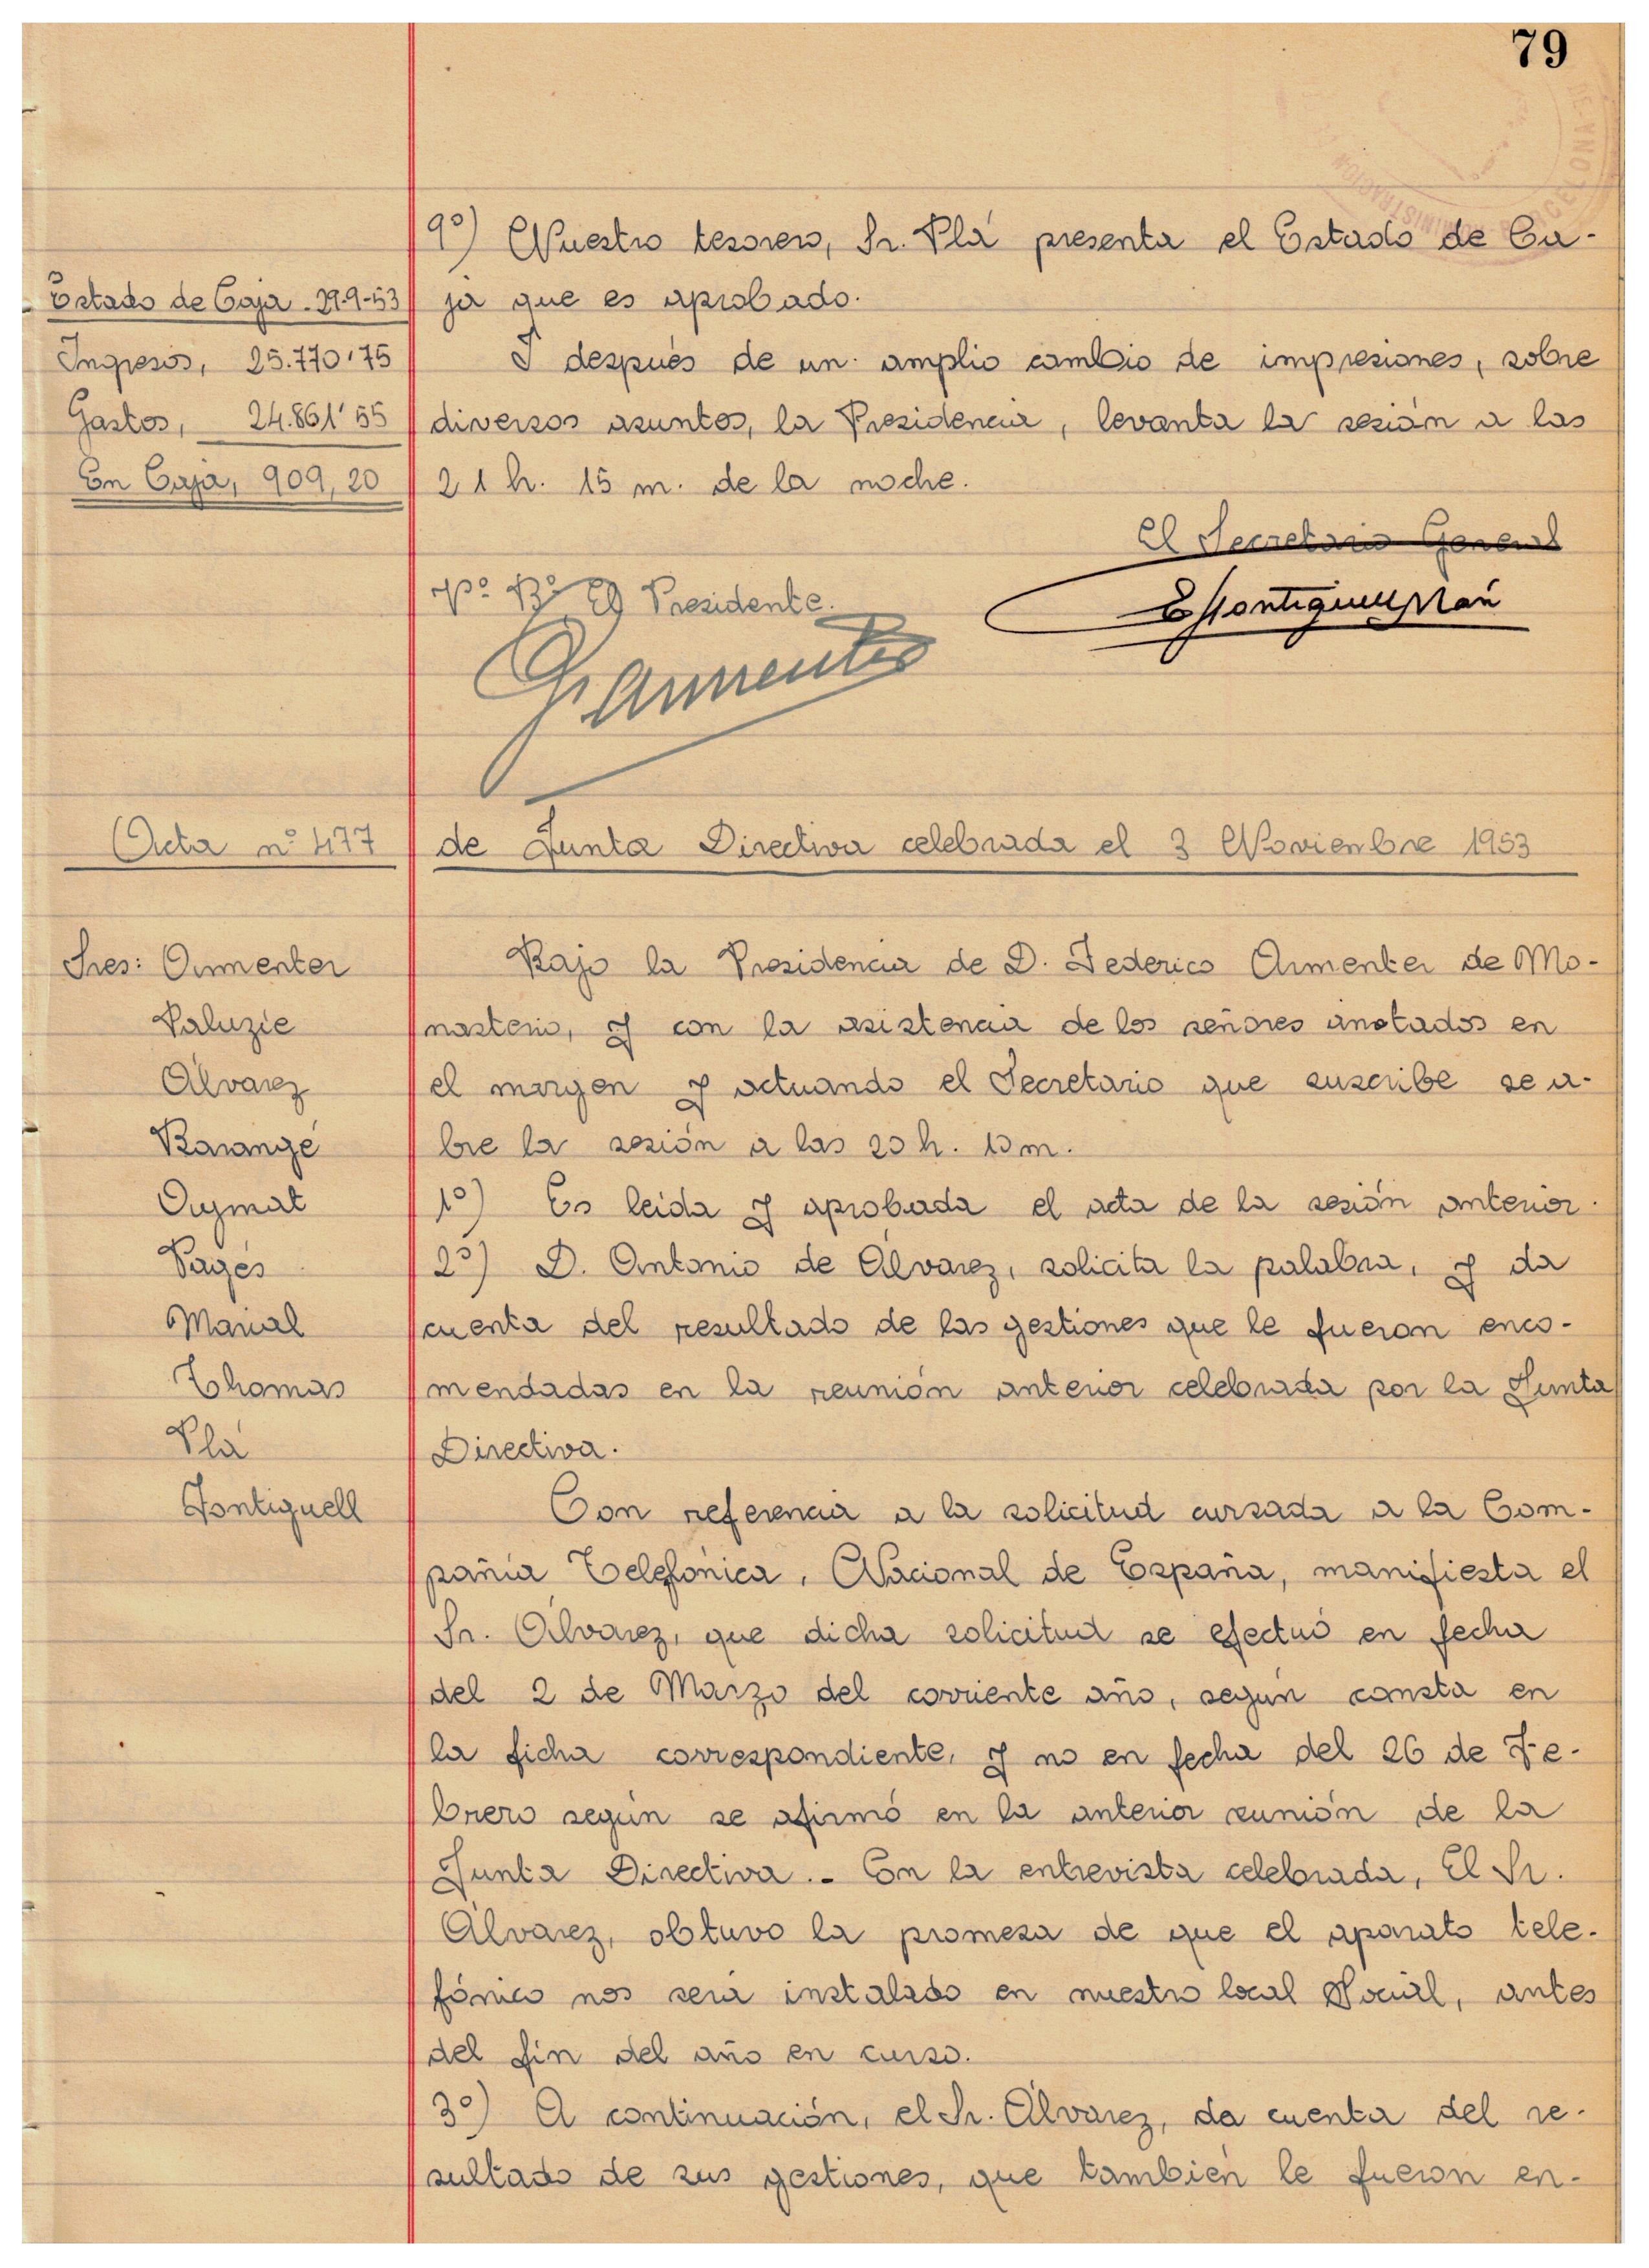 79
9º) Nuestro tesorero, Sr. Plá presenta el Estado de Ca-
Estado de Caja - 29-9-53
ja que es aprobado.
Ingresos, 25.770'75
I después de un amplio cambio de impresiones, sobre
Gastos, 24.861'55
diversos asuntos, la Presidencia, levanta la sesión a las
En Caja, 909,20
21 h. 15 m. de la noche.
El Secretario General
Vº Bº El Presidente.
Acta nº 477
de Junta Directiva celebrada el 3 Novienbre 1953
Sres: Armenter
Bajo la Presidencia de D. Federico Armenter de Mo-
Paluzie
nasterio, y con la asistencia de los señores anotados en
Álvarez
el margen y actuando el Secretario que suscribe se a-
Barangé
bre la sesión a las 20 h. 10 m.
Aymat
1º) Es leida y aprobada el acta de la sesión anterior.
Pagés
2º) D. Antonio de Álvarez, solicita la palabra, y da
Marial
cuenta del resultado de las gestiones que le fueron enco-
Thomas
mendadas en la reunión anterior celebrada por la Junta
Plá
Directiva.
Fontiguell
Con referencia a la solicitud cursada a la Com-
pañia Telefónica, Nacional de España, manifiesta el
Sr. Álvarez, que dicha solicitud se efectuó en fecha
del 2 de Marzo del corriente año, según consta en
la ficha correspondiente, y no en fecha del 26 de Fe-
brero según se afirmó en la anterior reunión de la
Junta Directiva.- En la entrevista celebrada, El Sr.
Álvarez, obtuvo la promesa de que el aparato tele-
fónico nos será instalado en nuestro local Social, antes
del fin del año en curso.
3º) A continuación, el Sr. Álvarez, da cuenta del re-
sultado de sus gestiones, que también le fueron en-